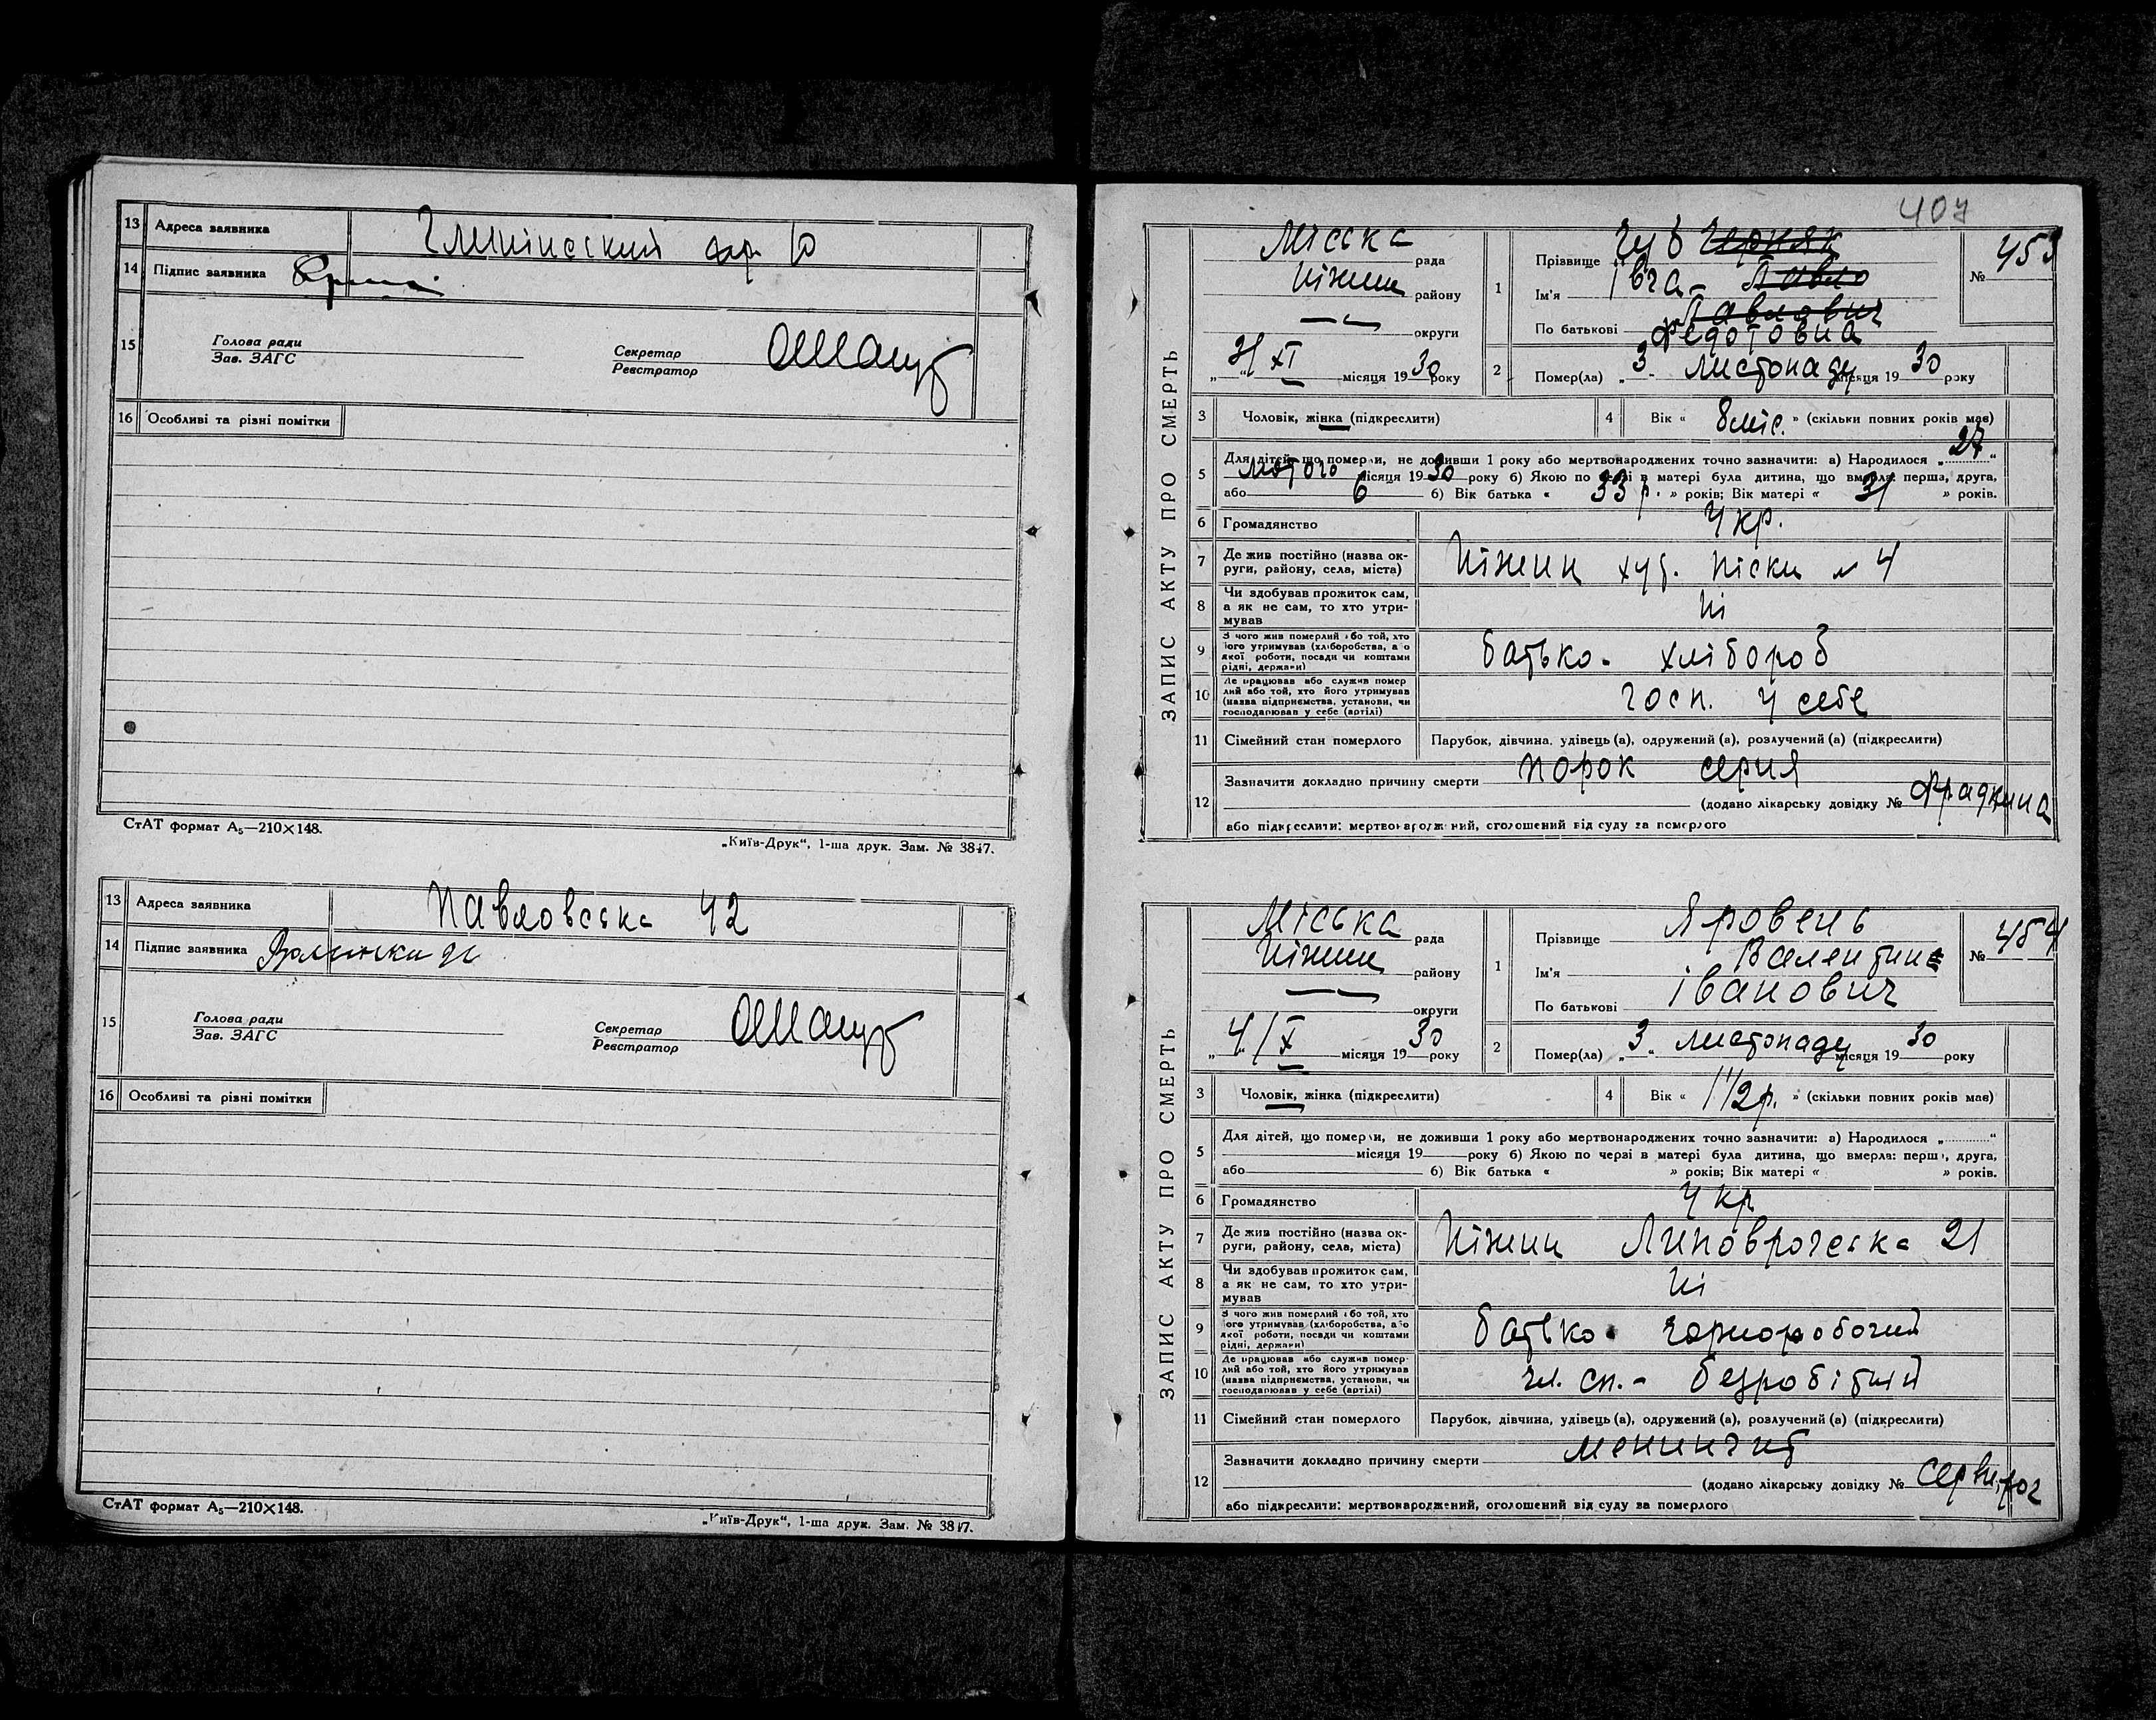 13 Адреса заявника
14 Підпис заявника
15 Голова ради
Зав. ЗАГС
Секретар
Реєстратор
16 Особливі та різні помітки
СтАТ формат А₅—210×148.
„Київ-Друк“, 1-ша друк. Зам. № 3847.
13 Адреса заявника Павловська 42
14 Підпис заявника
15 Голова ради
Зав. ЗАГС
Секретар
Реєстратор
16 Особливі та різні помітки
СтАТ формат А₅—210×148.
„Київ-Друк“, 1-ша друк. Зам. № 3847.
407
ЗАПИС АКТУ ПРО СМЕРТЬ
Міська рада
Ніжин району
округи
3/XI місяця 1930 року
1 Прізвище Чуб Черняк
Ім'я Івга - Павло
Павлович
По батькові Федотовна
№ 453
2 Помер(ла) „3“ листопаду місяця 1930 року
3 Чоловік, жінка (підкреслити)
4 Вік « 8 міс. » (скільки повних років має)
5 Для дітей, що померли, не доживши 1 року або мертвонароджених точно зазначити: а) Народилося „27“
лютого місяця 1930 року б) Якою по черзі в матері була дитина, що вмерла: перша, друга,
або 6 б) Вік батька « 33 р. » років; Вік матері « 31 » років.
6 Громадянство Укр.
7 Де жив постійно (назва ок-
руги, району, села, міста) Ніжин хут. Піски № 4
8 Чи здобував прожиток сам,
а як не сам, то хто утри-
мував Ні
9 З чого жив померлий або той, хто
його утримував (хліборобства, або
якої роботи, посади чи коштами
рідні, держави) батько - хлібороб
10 Де працював або служив помер-
лий або той, хто його утримував
(назва підприємства, установи, чи
господарював у себе (артілі) госп. у себе
11 Сімейний стан померлого Парубок, дівчина, удівець (а), одружений (а), розлучений (а) (підкреслити)
12 Зазначити докладно причину смерти порок серця
(додано лікарську довідку № Фрадкина
або підкреслити: мертвонароджений, оголошений від суду за померлого
ЗАПИС АКТУ ПРО СМЕРТЬ
Міська рада
Ніжин району
округи
4/X місяця 1930 року
1 Прізвище Яровень
Ім'я Валентин
По батькові Іванович
№ 454
2 Помер(ла) „3“ листопаду місяця 1930 року
3 Чоловік, жінка (підкреслити)
4 Вік « 1 1/2 р. » (скільки повних років має)
5 Для дітей, що померли, не доживши 1 року або мертвонароджених точно зазначити: а) Народилося „ “
місяця 19 року б) Якою по черзі в матері була дитина, що вмерла: перша, друга,
або б) Вік батька « » років; Вік матері « » років.
6 Громадянство Укр
7 Де жив постійно (назва ок-
руги, району, села, міста) Ніжин 21
8 Чи здобував прожиток сам,
а як не сам, то хто утри-
мував Ні
9 З чого жив померлий або той, хто
його утримував (хліборобства, або
якої роботи, посади чи коштами
рідні, держави) батько - чорноробочий
10 Де працював або служив помер-
лий або той, хто його утримував
(назва підприємства, установи, чи
господарював у себе (артілі) чл. сп. - безробітний
11 Сімейний стан померлого Парубок, дівчина, удівець (а), одружений (а), розлучений (а) (підкреслити)
12 Зазначити докладно причину смерти менингит
(додано лікарську довідку №
або підкреслити: мертвонароджений, оголошений від суду за померлого